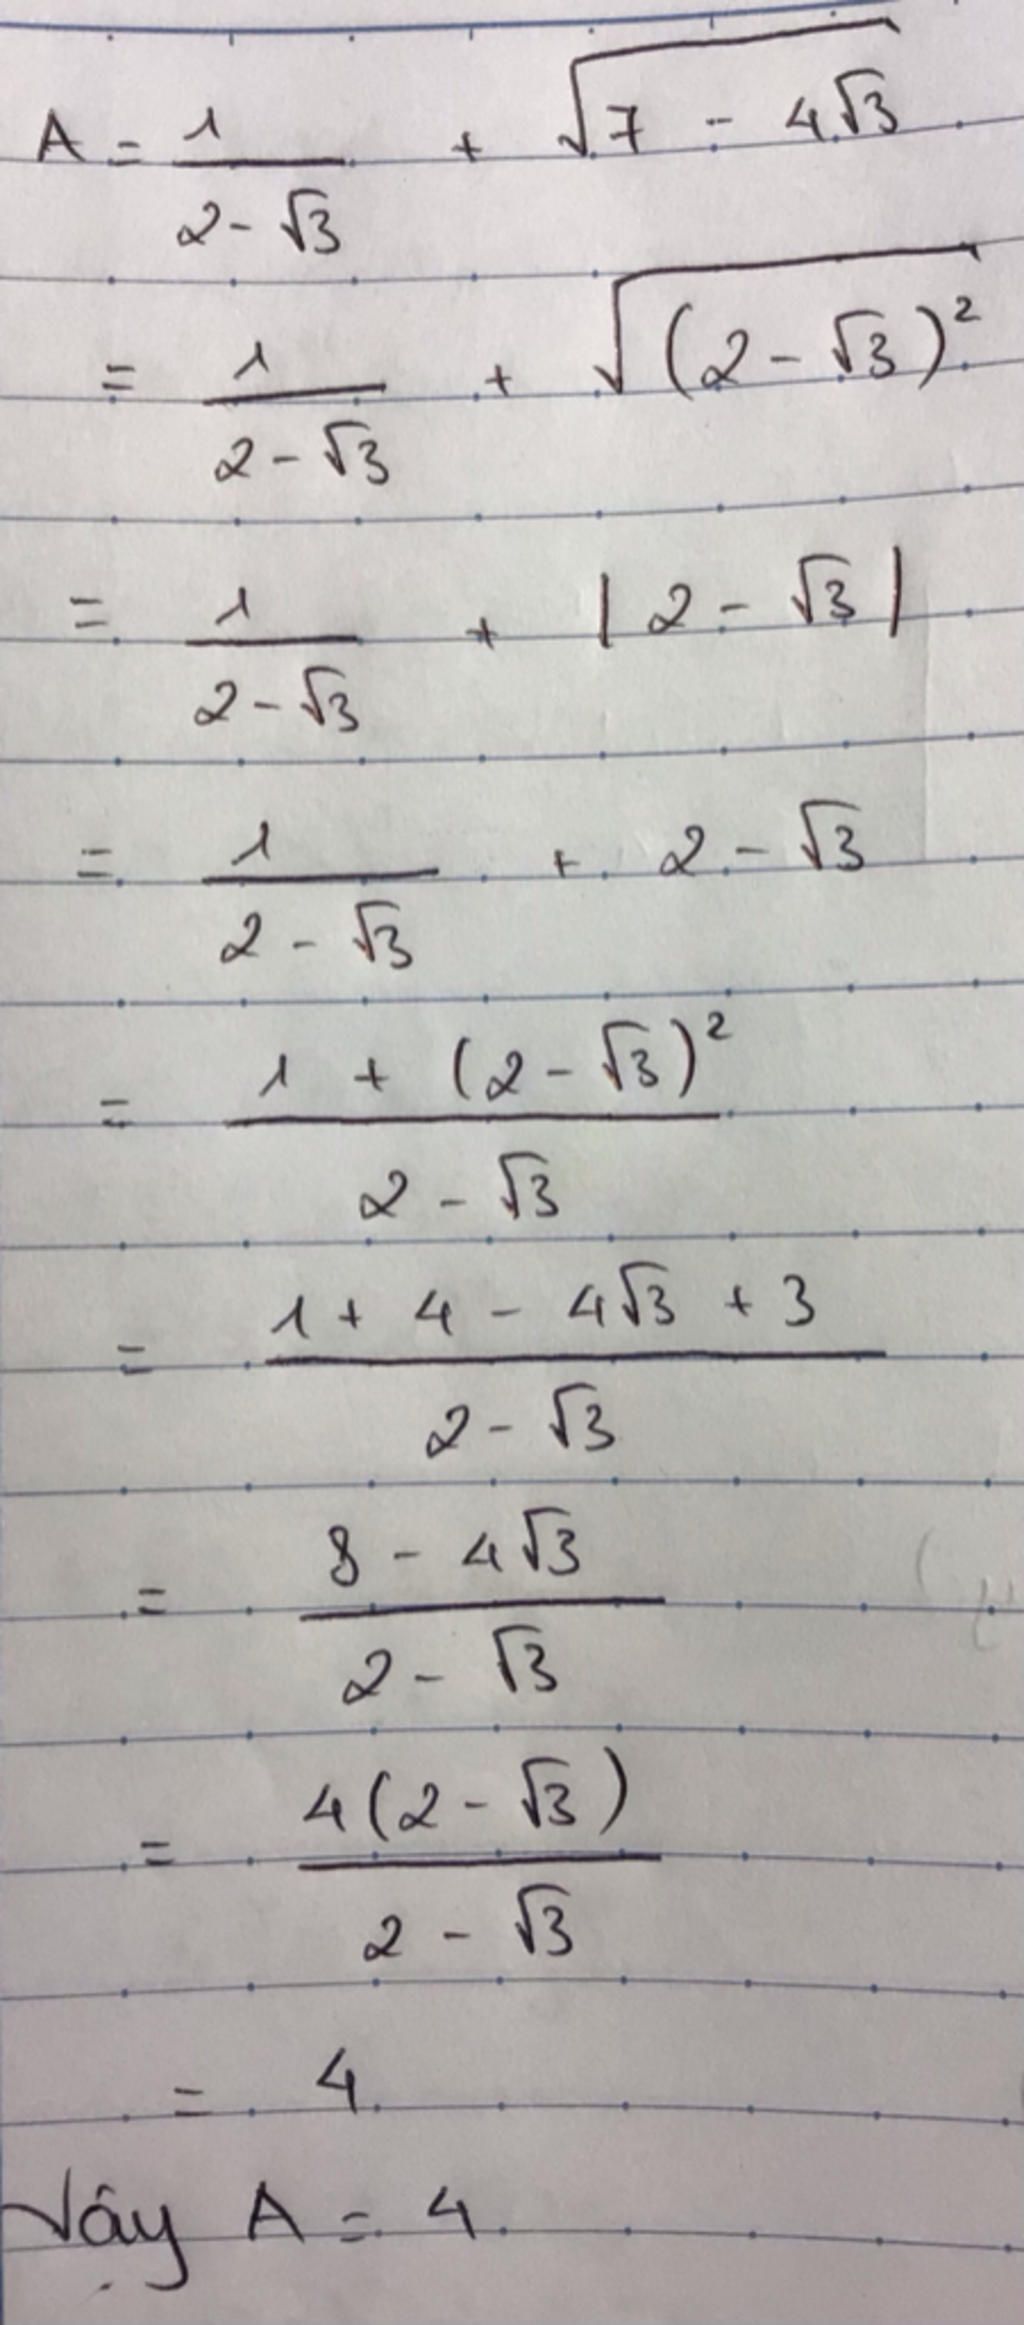 A = \frac{1}{2 - \sqrt{3}} + \sqrt{7 - 4\sqrt{3}}
= \frac{1}{2 - \sqrt{3}} + \sqrt{(2 - \sqrt{3})^2}
= \frac{1}{2 - \sqrt{3}} + |2 - \sqrt{3}|
= \frac{1}{2 - \sqrt{3}} + 2 - \sqrt{3}
= \frac{1 + (2 - \sqrt{3})^2}{2 - \sqrt{3}}
= \frac{1 + 4 - 4\sqrt{3} + 3}{2 - \sqrt{3}}
= \frac{8 - 4\sqrt{3}}{2 - \sqrt{3}}
= \frac{4(2 - \sqrt{3})}{2 - \sqrt{3}}
= 4
Vậy A = 4